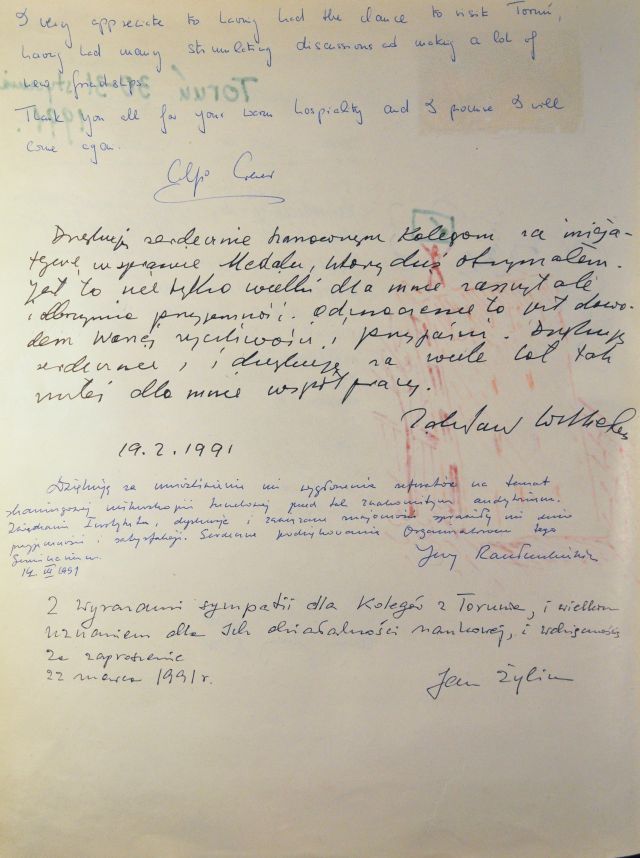 I very appreciate to having had the chance to visit Toruń,
having had many stimulating discussions and making a lot of
new friendships.
Thank you all for your warm hospitality and I promise I will
come again.
Dziękuję serdecznie Szanownym Kolegom za inicja-
tywę w sprawie Medalu, który dziś otrzymałem.
Jest to nie tylko wielki dla mnie zaszczyt ale
i olbrzymia przyjemność. Odznaczenie to jest dowo-
dem Waszej życzliwości i przyjaźni. Dziękuję
serdecznie i dziękuję za wiele lat tak
miłej dla mnie współpracy.
19.2.1991
Dziękuję za umożliwienie mi wygłoszenia referatów na temat
skaningowej mikroskopii tunelowej przed tak znakomitym audytorium.
Zwiedzanie Instytutu, dyskusje i zawarte znajomości sprawiły mi dużo
przyjemności i satysfakcji. Serdeczne podziękowanie Organizatorom tego
Seminarium.
14. III 1991
Jerzy
Z wyrazami sympatii dla Kolegów z Torunia, i wielkim
uznaniem dla Ich działalności naukowej, i wdzięczności
za zaproszenie
22 marca 1991 r.
Jan Żylin
Toruń 30-31 stycznia
1991